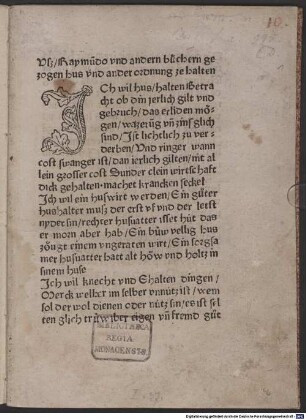 10.
Uſz/Raymůdo vnd andern bůchern ge
zogen hus vnd ander ordnung ze halten
JCH wil hus/halten Betra
cht ob din jerlich gilt vnd
gebzuch/das erliden mö
gen/wazerüg vñ zinß glich
ſind/Jſt lichtlich zu ver=
derben/Vnd ringer wann
coſt ſwanger iſt/dan ierlich gilten/nit al
lein groſſer coſt Sunder clein wirtſchaft
dick gehalten·machet krancken ſeckel
Jch wil ein huſwirt werden/Ein gůter
hushalter muſz der erſt vf vnd der letſt
nyder ſin/rechter huſuatter iſſet hüt das
er morn aber hab/Ein bůw vellig hus
zöugt einem vngeraten wirt/Ein ſorgſa
mer huſuatter hatt alt höw vnd holtz in
ſinem huſe
Jch wil knecht vnd Ehalten dingen/
Merck welher im ſelber vnnütz iſt/wem
ſol der wol dienen oder nütz ſin/es iſt ſel
ten glich trüw/ber eigen vñ fremd gůt
BIBLIOTHECA
REGIA
MONACENSIS.